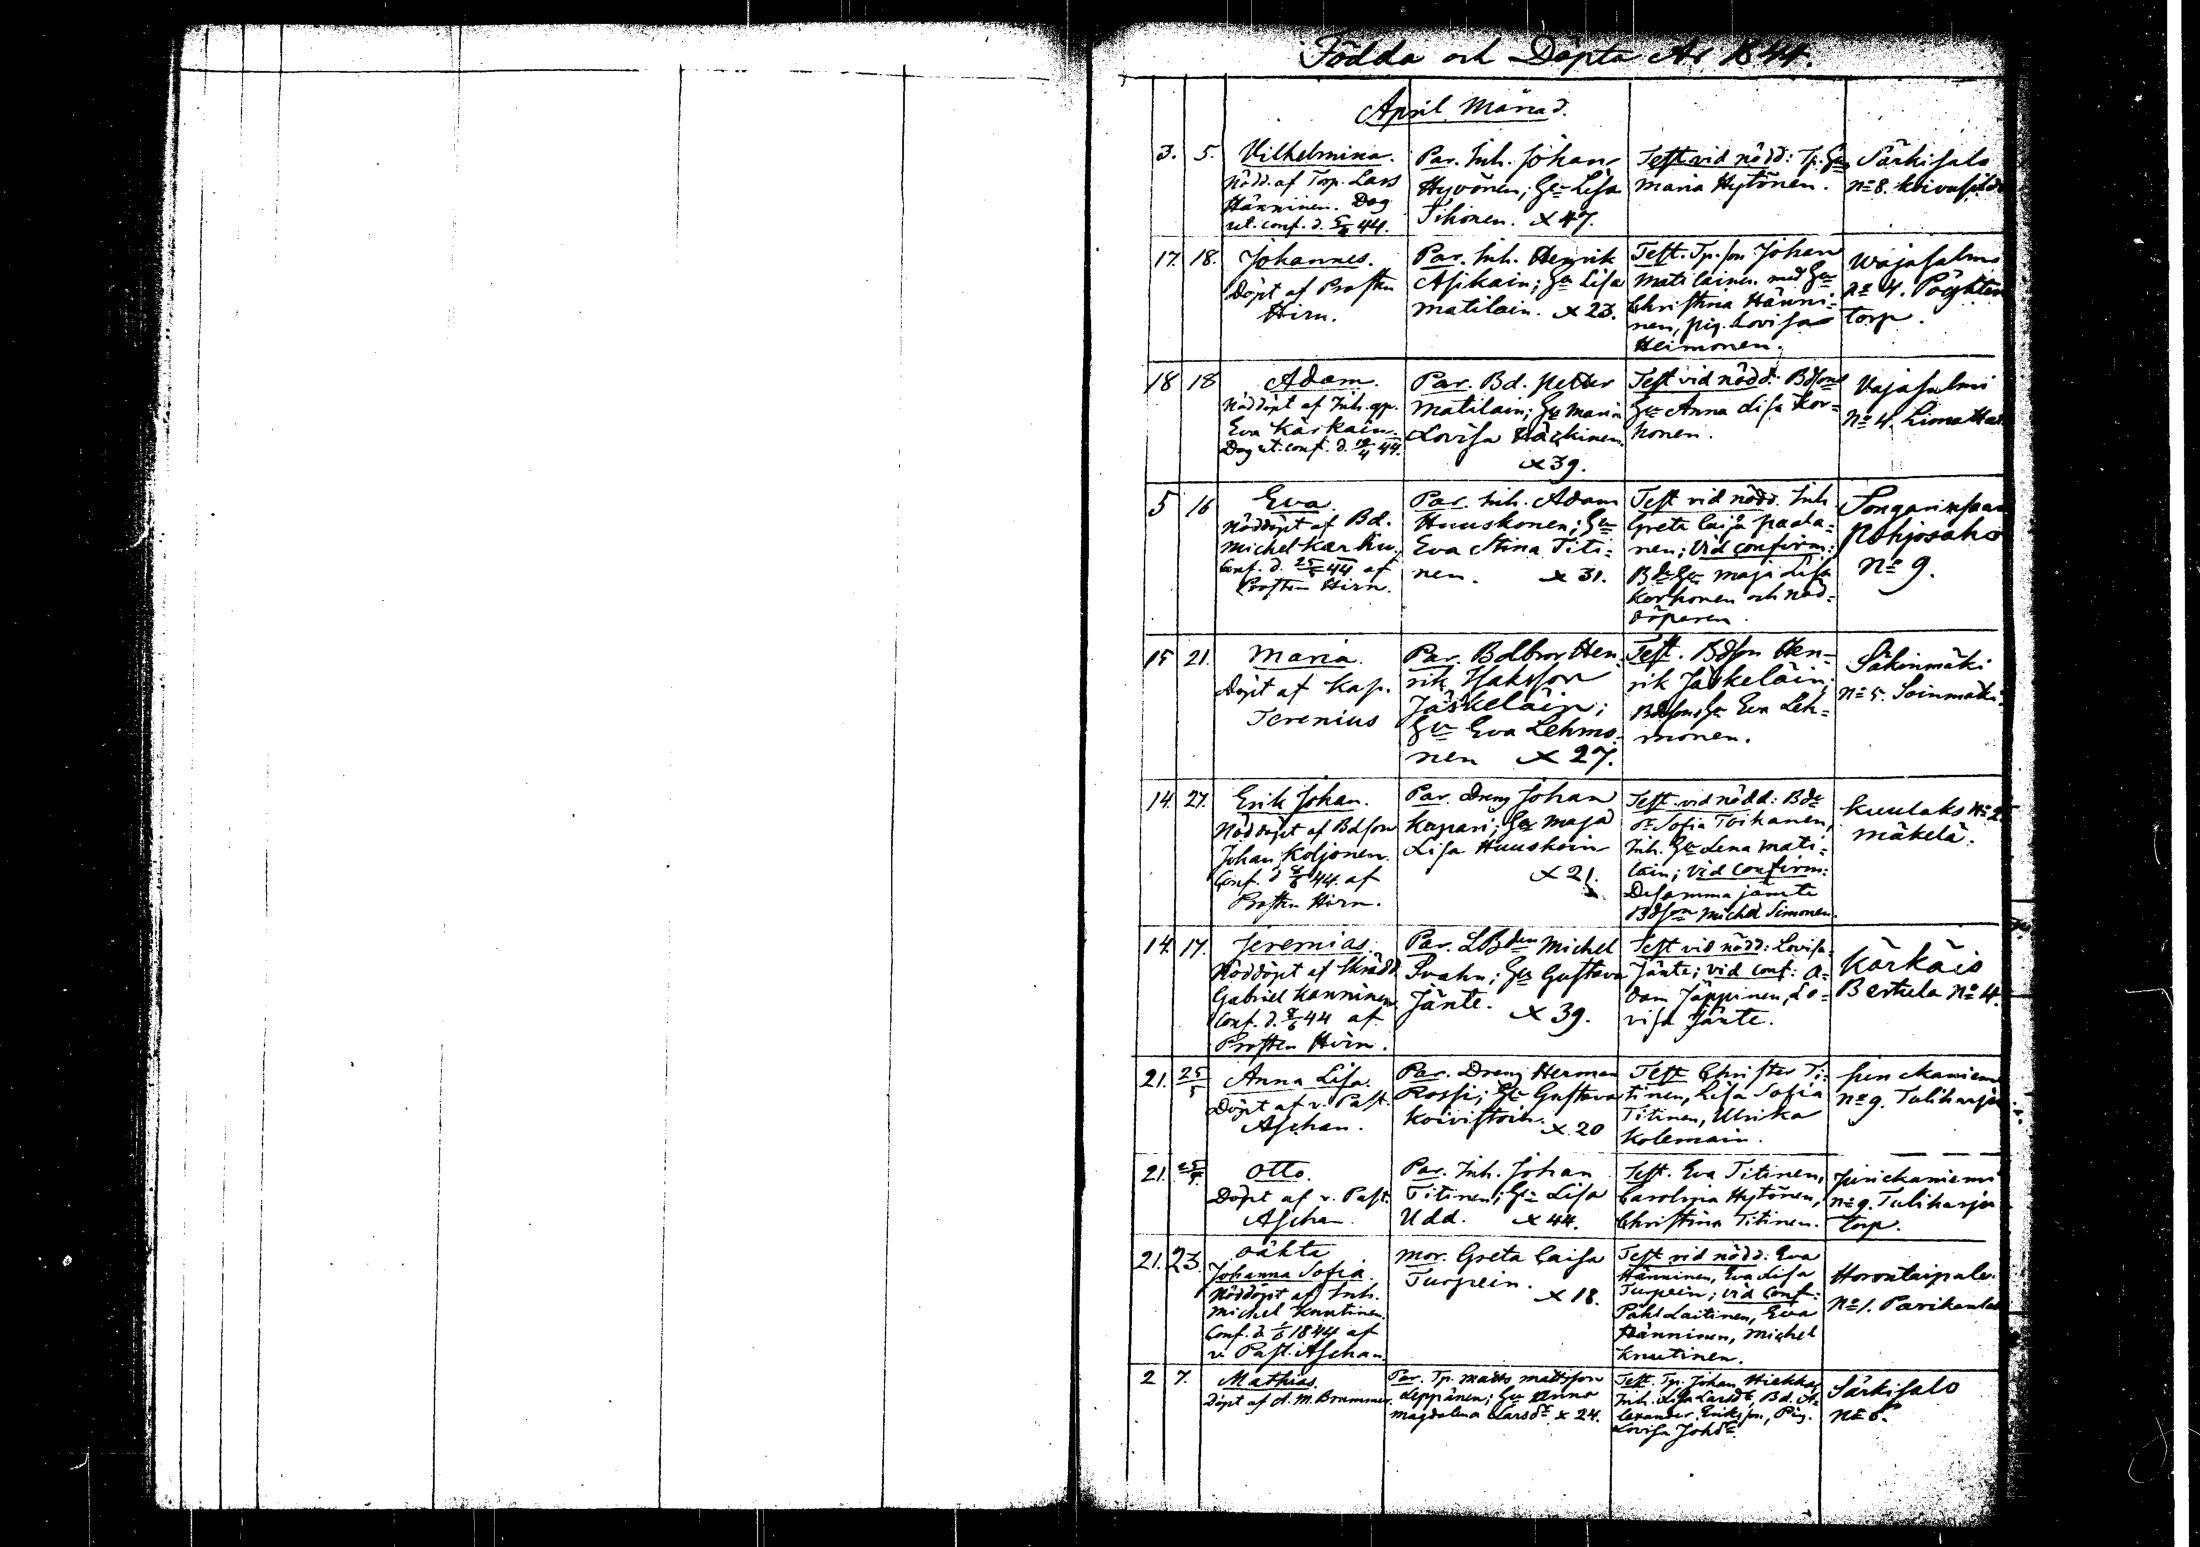 Födda och Döpta År 1844.
April Månad.
3. 5. Vilhelmina.
Nödd. af Torp. Lars
Hänninen. Dag
ut. conf. d. 44.
Par. Inh. Johan
Hyvönen; Hu Lisa
Tihonen. x 47.
Test vid nödd: Tp. Hu
Maria Hytönen.
Särkisalo
No 8.
17. 18. Johannes.
Döpt af Prosten
Hirn.
Par. Inh. Henrik
Asikain; Hu Lisa
Matilain. x 23.
Test. Tp. son Johan
Matilainen med Hu
Christina Hänni=
nen, pig. Lovisa
Heimonen.
Wajasalmi
No 4.
torp.
18 18 Adam.
Nöddöpt af Inh. gp.
Eva Kärkäin.
Dag ut. conf. d. 44.
Par. Bd. Petter
Matilain; Hu Maria
Lovisa Häckinen.
x 39.
Test vid nödd: Bdsons
Hu Anna Lisa Kor=
honen.
Vajasalmi
No 4. Limatta
5 16 Eva.
Nöddöpt af Bd.
Michel
Conf. d. 44 af
Prosten Hirn.
Par. Inh. Adam
Huuskonen; Hu
Eva Stina Titi=
nen. x 31.
Test vid nödd. Inh
Greta Caisa Paala=
nen; vid confirm:
Bds Hu Maja Lisa
Korhonen och nöd=
döparen.
Songarinsaari
Pohjosaho
No 9.
15 21. Maria.
Döpt af Kap.
Serenius
Par. Bdbror Hen
rik Isaksson
Jäskeläin;
Hu Eva Lehmo
nen x 27.
Test. Bdson Hen=
rik Jäskeläin;
Bdsons Hu Eva Leh=
monen.
Säkinmäki
No 5. Soinmäki
14. 27. Erik Johan.
Nöddöpt af Bdson
Johan Koljonen.
Conf. d 44. af
Prosten Hirn.
Par. Dreng Johan
Kupari; Hu Maja
Lisa Huuskoin
x 21.
Test. vid nödd: Bds
dr Sofia Toihanen,
Inh. Hu Lena Mati=
lain; vid confirm:
Desamma jämte
Bdson Michel Simonen.
Kuulaks No 2
Mäkelä.
14. 17. Jeremias.
Nöddöpt af Skrädd.
Gabriel Kanninen.
Conf. d. 44 af
Prosten Hirn.
Par. LBden Michel
Svahn; Hu Gustava
Jänte. x 39.
Test vid nödd: Lovisa
Jänte; vid conf: A=
dam Jäppinen, Lo=
visa Jänte.
Kärkäis
Bertula No 4.
21. 25/5 Anna Lisa.
Döpt af v. Past.
Aschan.
Par. Dreng Herman
Rossi; Hu Gustava
Koivistoin. x 20
Test Christer Ti=
tinen, Lisa Sofia
Titinen, Ulrika
Kolemain.
No 9. Tuliharju
21. 25/5. Otto.
Döpt af v. Past.
Aschan.
Par. Inh. Johan
Titinen; Hu Lisa
Udd. x 44.
Test. Eva Titinen,
Carolina Hytönen,
Christina Titinen.
No 9. Tuliharju
torp.
21. 23. oäkta
Johanna Sofia.
Nöddöpt af Inh.
Michel Knutinen.
Conf. d. 1844 af
v. Past. Aschan.
Mor. Greta Caisa
Turpein.
x 18.
Test vid nödd: Eva
Hänninen, Eva Lisa
Turpein; vid conf:
Påhl Laitinen, Eva
Hänninen, Michel
Knutinen.
Horontaipale
No 1.
2 7. Mathias.
Döpt af A. M. Brummer.
Par. Tp. Matts Mattsson
Leppänen; Hu Anna
Magdalena Larsdr x 24.
Test. Tp. Johan Hiekka,
Inh. Lisa Larsdr, Bd. A=
lexander Eriksson, Pig.
Lovisa Johdr.
Särkisalo
No 6.